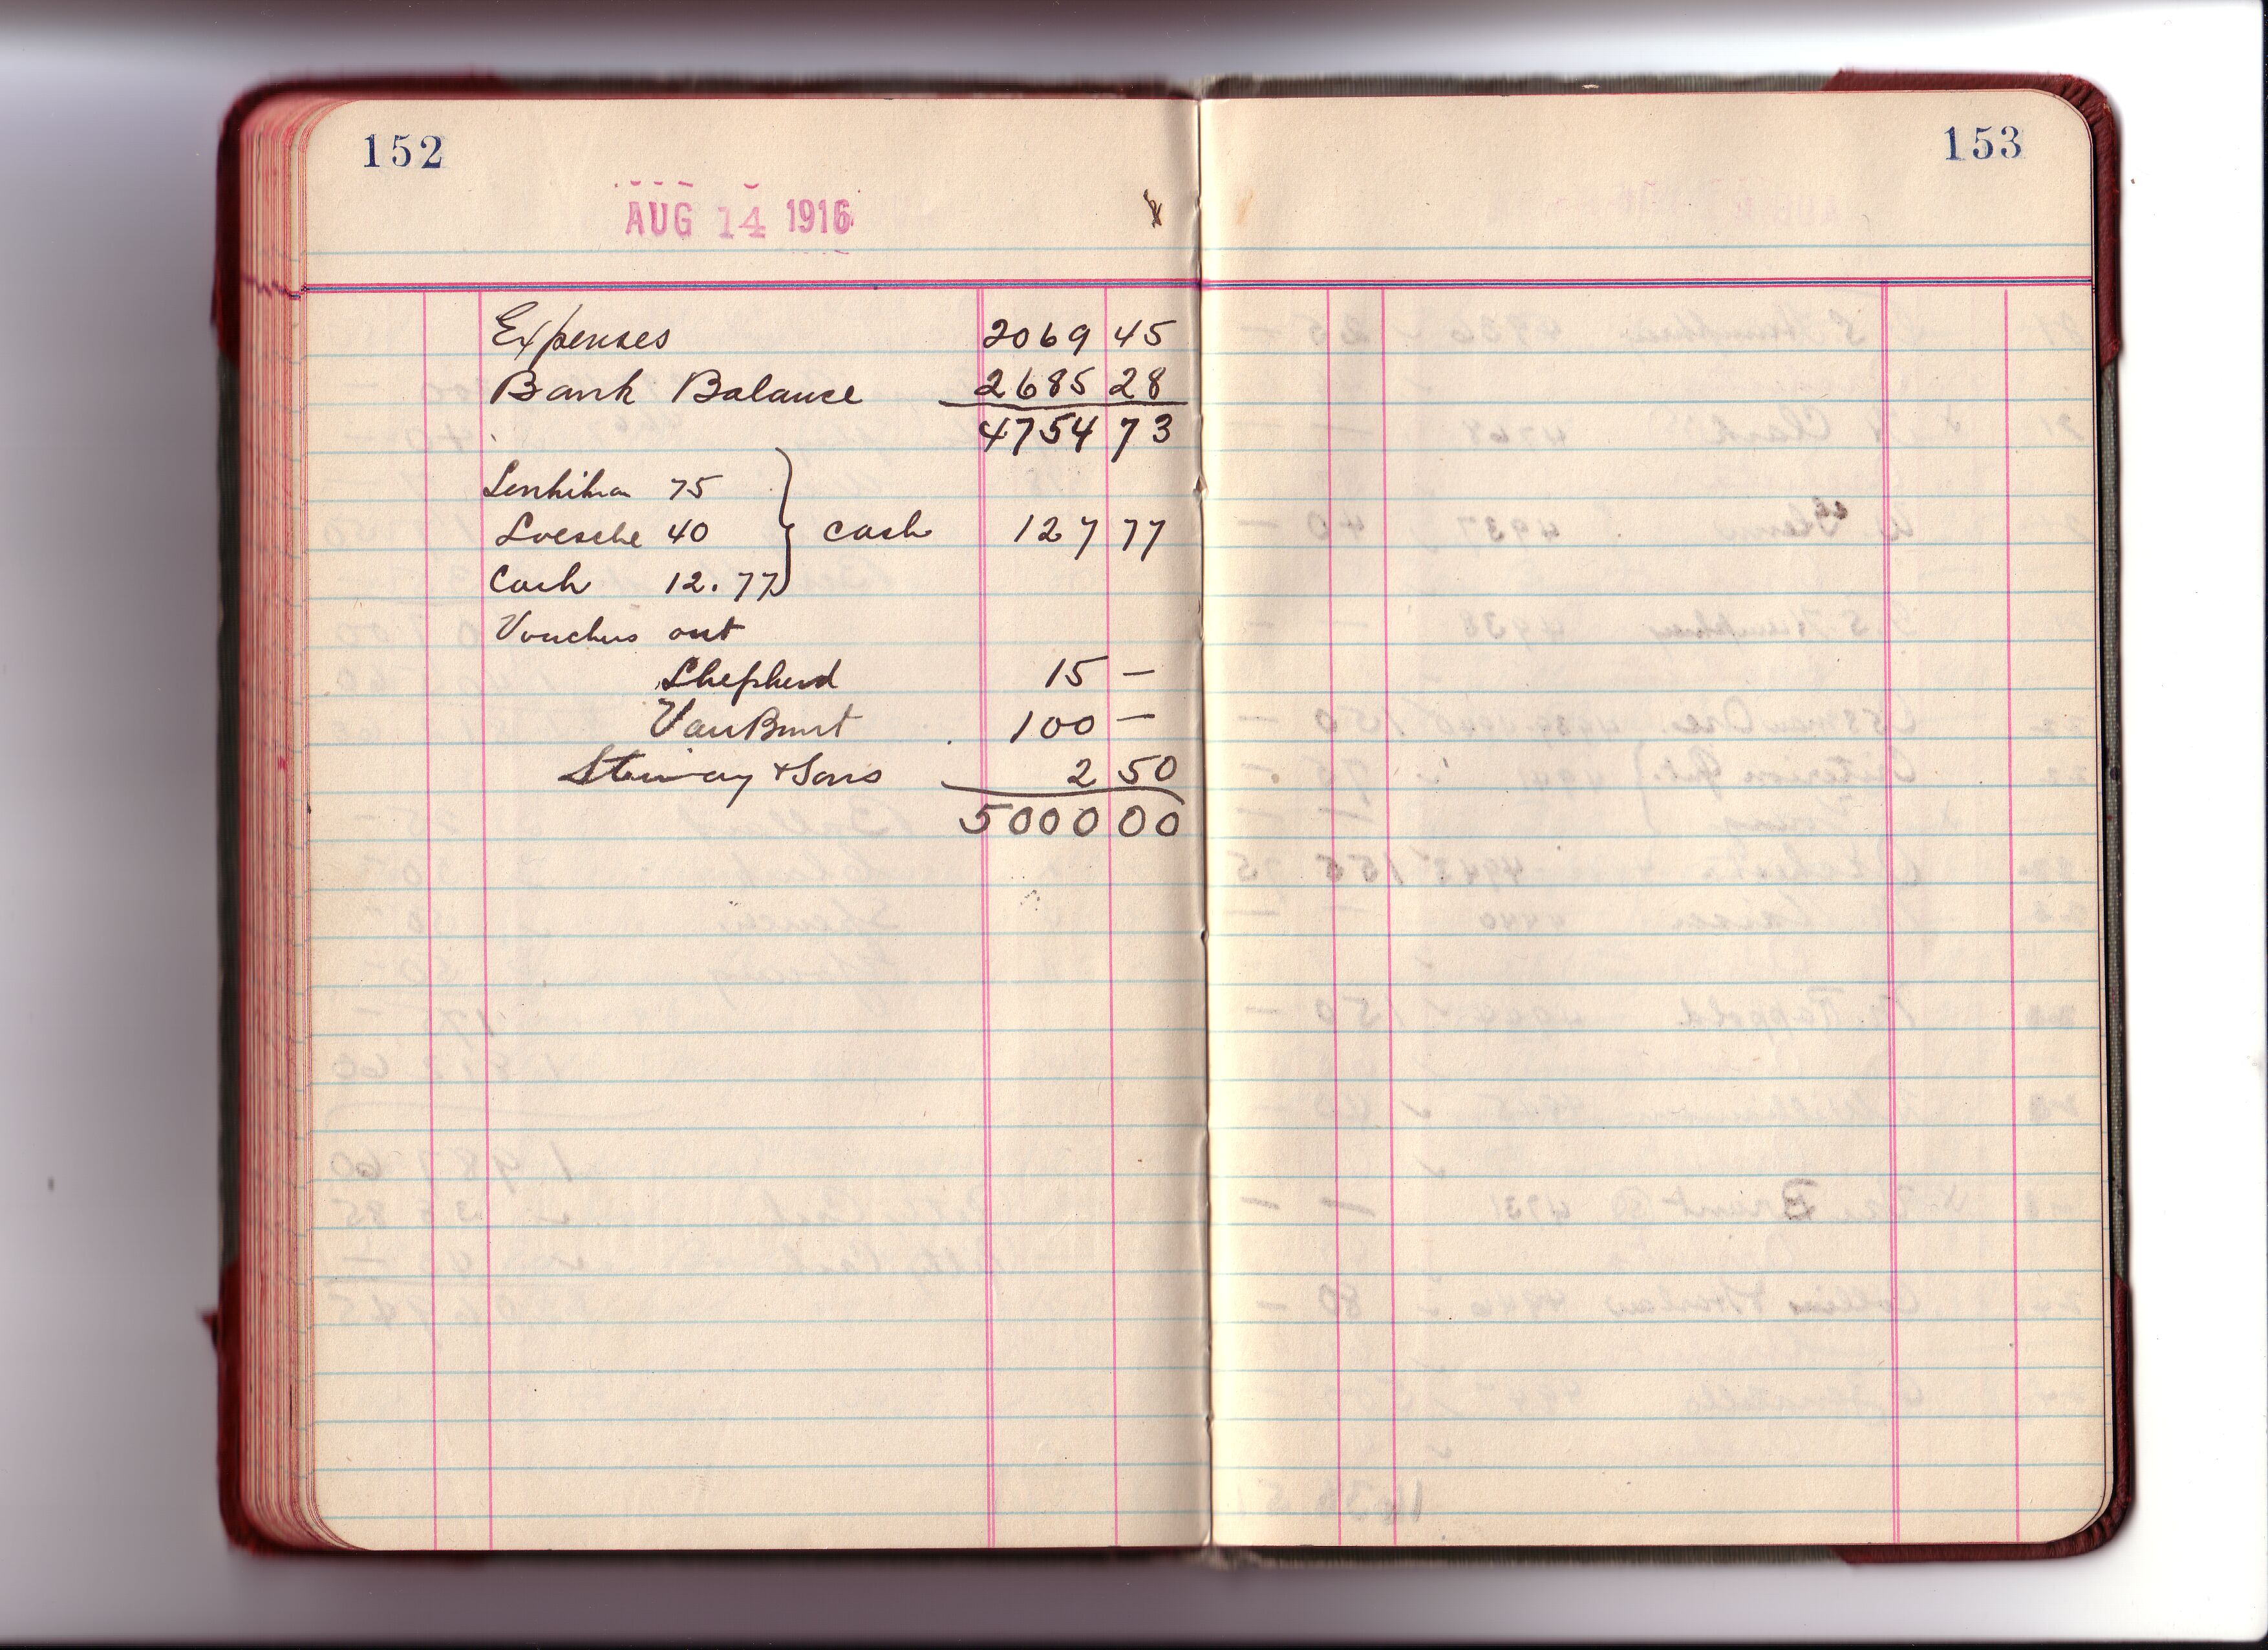 152
AUG 14 1916
Expenses 2069 45
Bank Balance 2685 28
4754 73
75
Loesche 40 } cash 127 77
Cash 12.77
Vouchers out
Shepherd 15 —
Van Brunt 100 —
Steinway & Sons 2 50
5000 00
153